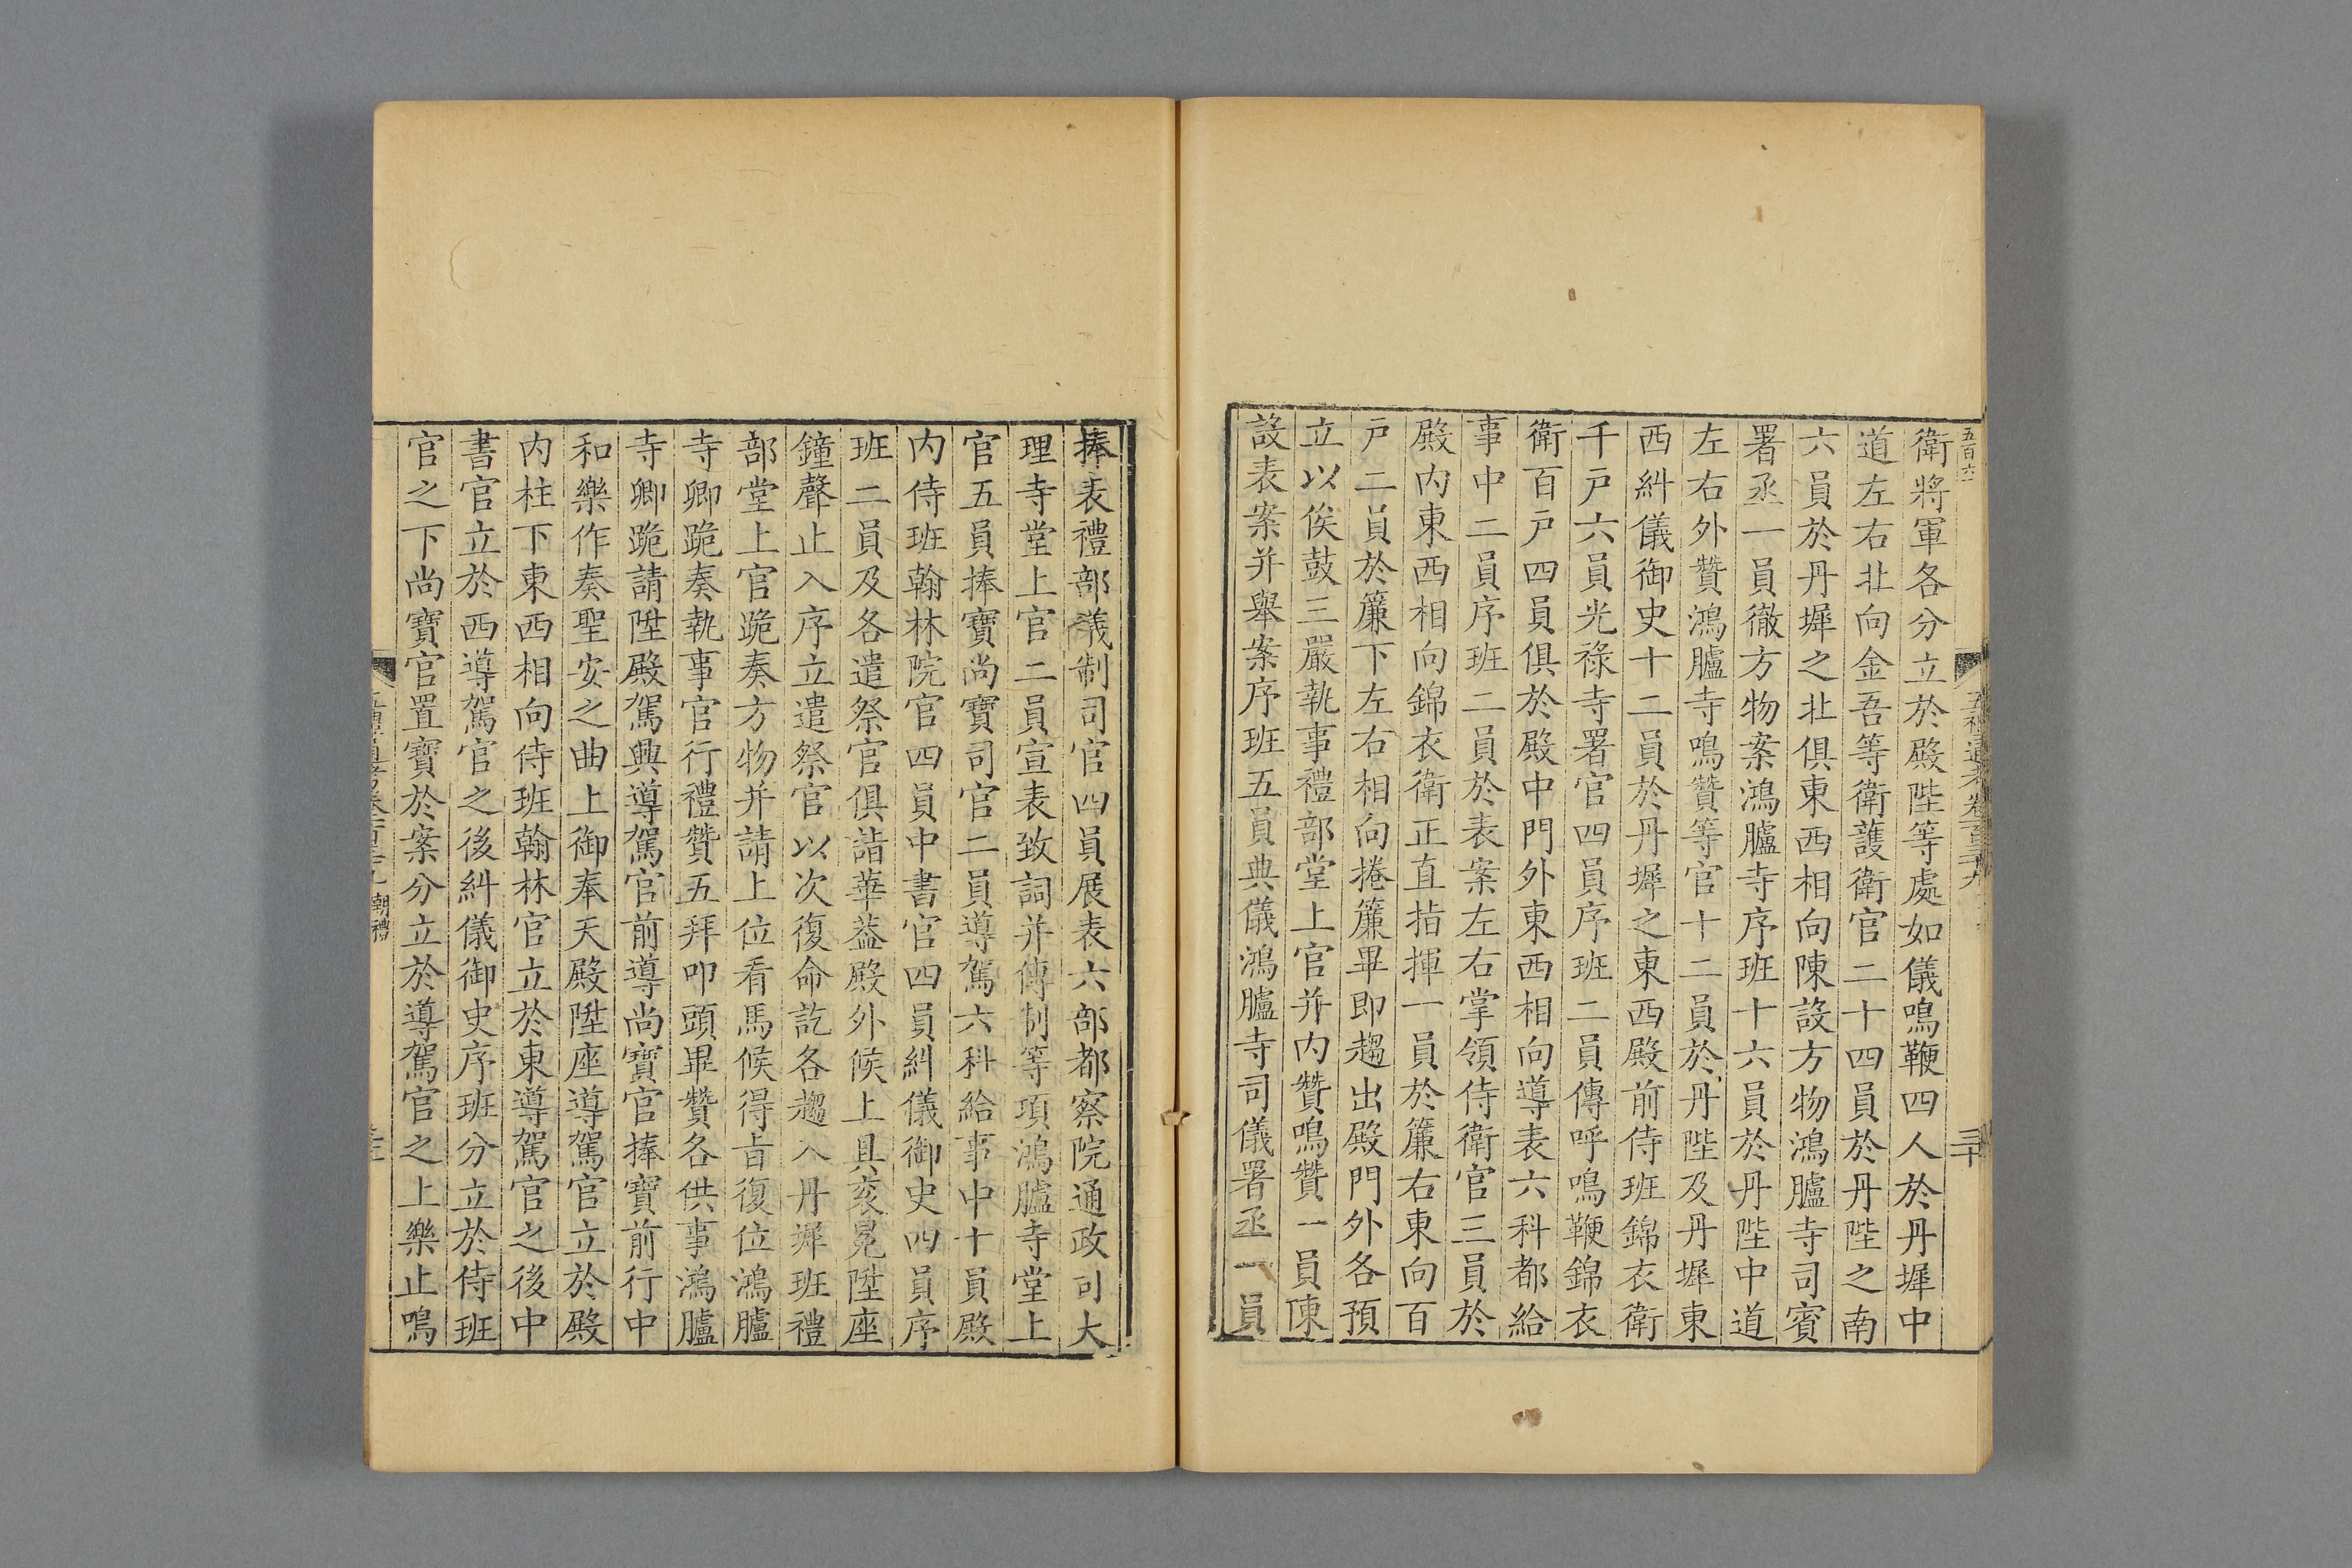 五百六二
五禮通考卷一百三十九
三十
衛將軍各分立於殿陛等處如儀鳴鞭四人於丹墀中
道左右北向金吾等衛護衛官二十四員於丹陛之南
六員於丹墀之北俱東西相向陳設方物鴻臚寺司賓
署丞一員徹方物案鴻臚寺序班十六員於丹陛中道
左右外贊鴻臚寺鳴贊等官十二員於丹陛及丹墀東
西糾儀御史十二員於丹墀之東西殿前侍班錦衣衛
千戶六員光祿寺署官四員序班二員傳呼鳴鞭錦衣
衛百戶四員俱於殿中門外東西相向導表六科都給
事中二員序班二員於表案左右掌領侍衛官三員於
殿內東西相向錦衣衛正直指揮一員於簾右東向百
戶二員於簾下左右相向捲簾畢即趨出殿門外各預
立以俟鼓三嚴執事禮部堂上官并內贊鳴贊一員陳
設表案并舉案序班五員典儀鴻臚寺司儀署丞一員
捧表禮部儀制司官四員展表六部都察院通政司大
理寺堂上官二員宣表致詞并傳制等項鴻臚寺堂上
官五員捧寶尚寶司官二員導駕六科給事中十員殿
內侍班翰林院官四員中書官四員糾儀御史四員序
班二員及各遣祭官俱詣華蓋殿外候上具袞冕陞座
鐘聲止入序立遣祭官以次復命訖各趨入丹墀班禮
部堂上官跪奏方物并請上位看馬候得旨復位鴻臚
寺卿跪奏執事官行禮贊五拜叩頭畢贊各供事鴻臚
寺卿跪請陞殿駕興導駕官前導尚寶官捧寶前行中
和樂作奏聖安之曲上御奉天殿陞座導駕官立於殿
內柱下東西相向侍班翰林官立於東導駕官之後中
書官立於西導駕官之後糾儀御史序班分立於侍班
官之下尚寶官置寶於案分立於導駕官之上樂止鳴
朝禮